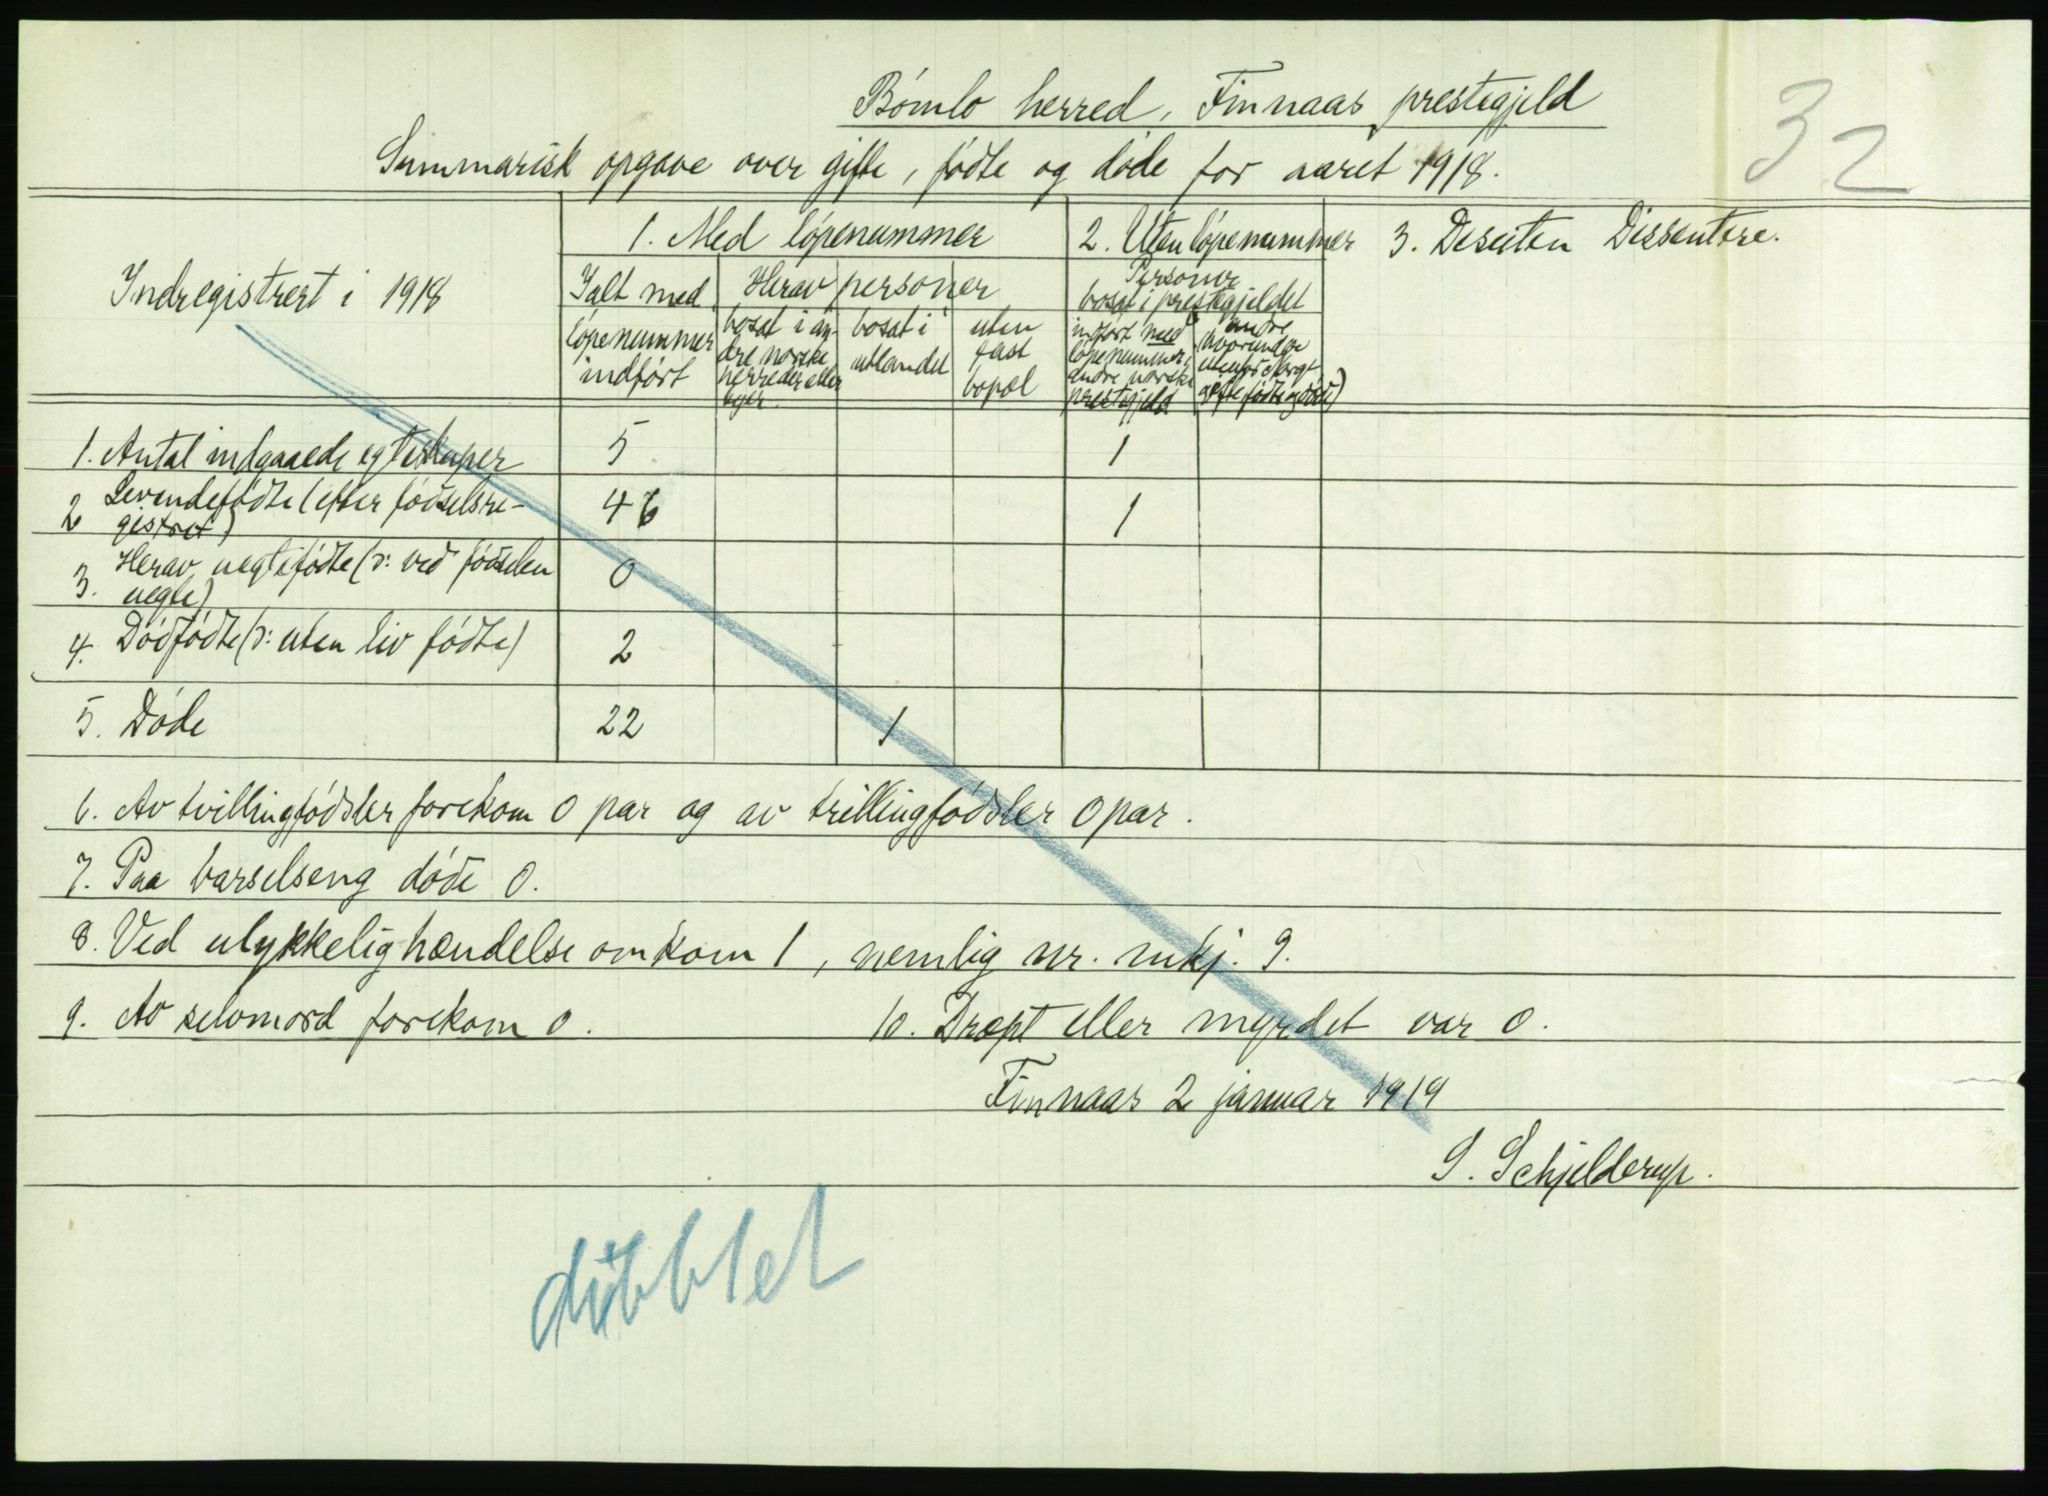 Bömlo herred, Finnaas prestegjeld
32
Summarisk opgave over gifte, födte og döde for aaret 1918.
Indregistrert i 1918
1. Med löpenummer
2. Uten löpenummer
3. Desuten Dissentere.
Ialt med löpenummer indfört
Herav personer
bosat i andre norske herreder eller byer.
bosat i utlandet
uten fast bopæl
Personer bosat i prestegjeldet
indfört med löpenummer i andre norske prestegjeld
andre (herunder utenfor Norge gifte födte og döde)
1. Antal indgaaede egteskaper 5 1
2 Levendefödte (efter födselsregistret) 46 1
3. Herav uegtefödte (ɔ: ved födselen uegte) 0
4. Dödfödte (ɔ: uten liv födte) 2
5. Döde 22 1
6. Av tvillingfödsler forekom 0 par og av trillingfödsler 0 par.
7. Paa barselseng döde 0.
8. Ved ulykkelig hændelse omkom 1, nemlig nr. mkj. 9.
9. Av selvmord forekom 0. 10. Dræpt eller myrdet var 0.
Finnaas 2 januar 1919
S. Schjelderup.
dubblet